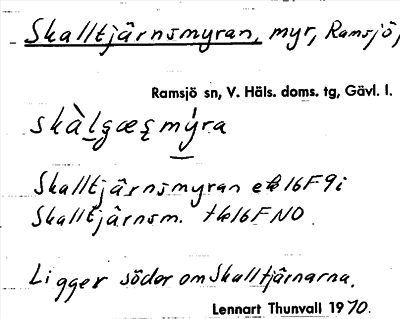 Skalltjärnsmyran, myr, Ramsjö,
Ramsjö sn, V. Häls. doms. tg, Gävl. l.
skàlgæs mýra
Skalltjärnsmyran ek 16F9i
Skalltjärnsm. tk 16F NO
Ligger söder om Skalltjärnarna.
Lennart Thunvall 1970.